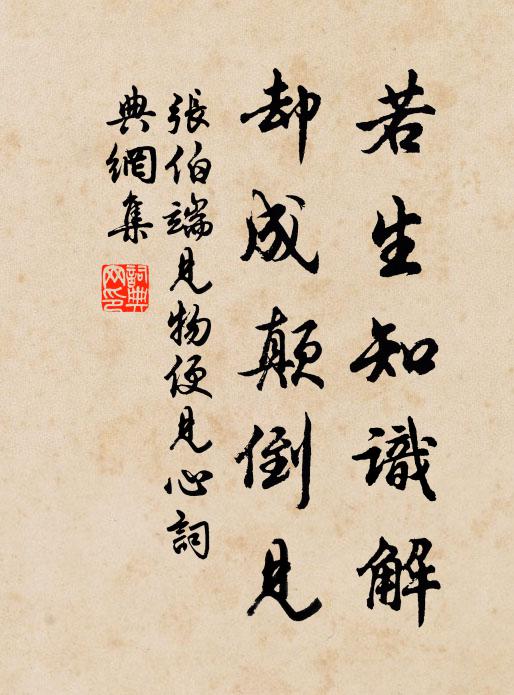 若生知識解
却成顛倒見
張伯端見物便見心詞
典網集
詞典
网印